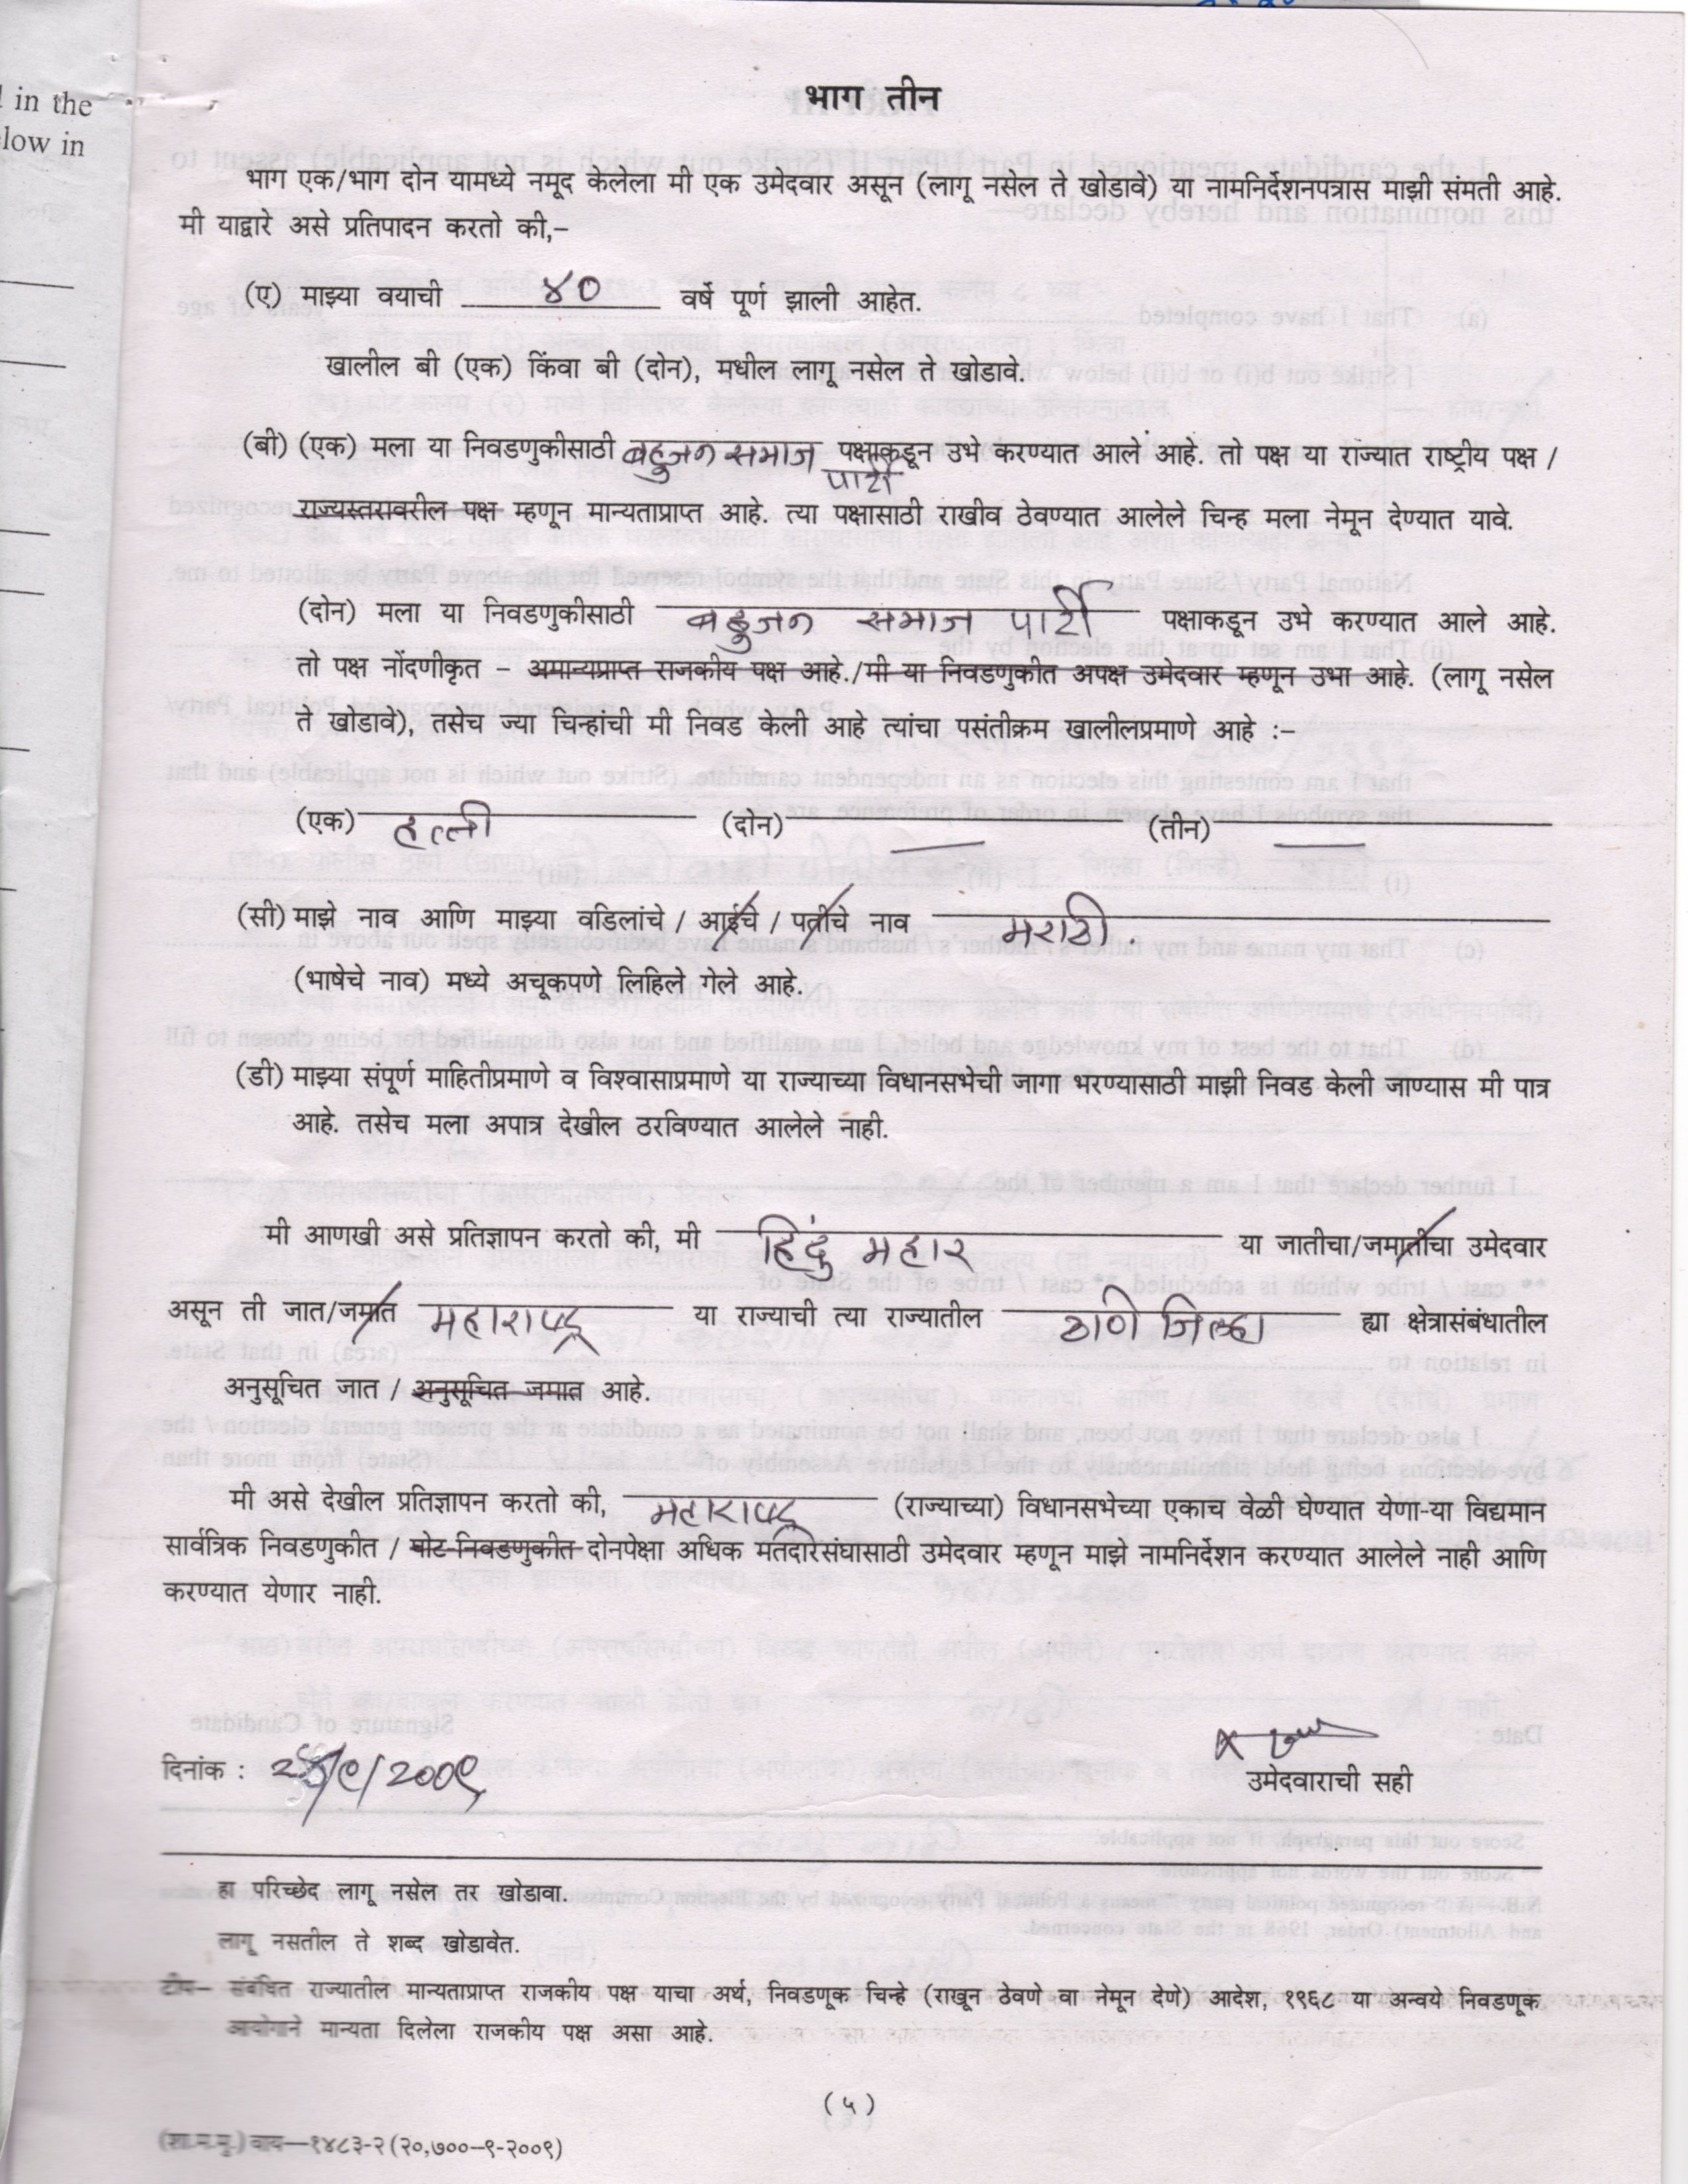 l in the
low in
भाग तीन
भाग एक/भाग दोन यामध्ये नमूद केलेला मी एक उमेदवार असून (लागू नसेल ते खोडावे) या नामनिर्देशनपत्रास माझी संमती आहे.
मी याद्वारे असे प्रतिपादन करतो की,–
(ए) माझ्या वयाची ४० वर्षे पूर्ण झाली आहेत.
खालील बी (एक) किंवा बी (दोन), मधील लागू नसेल ते खोडावे.
(बी) (एक) मला या निवडणुकीसाठी बहुजन समाज पक्षाकडून उभे करण्यात आले आहे. तो पक्ष या राज्यात राष्ट्रीय पक्ष /
पार्टी
राज्यस्तरावरील पक्ष म्हणून मान्यताप्राप्त आहे. त्या पक्षासाठी राखीव ठेवण्यात आलेले चिन्ह मला नेमून देण्यात यावे.
(दोन) मला या निवडणुकीसाठी बहुजन समाज पार्टी पक्षाकडून उभे करण्यात आले आहे.
तो पक्ष नोंदणीकृत – अमान्यप्राप्त राजकीय पक्ष आहे./मी या निवडणुकीत अपक्ष उमेदवार म्हणून उभा आहे. (लागू नसेल
ते खोडावे), तसेच ज्या चिन्हांची मी निवड केली आहे त्यांचा पसंतीक्रम खालीलप्रमाणे आहे :–
(एक) हत्ती (दोन) — (तीन) —
(सी) माझे नाव आणि माझ्या वडिलांचे / आईचे / पतीचे नाव मराठी.
(भाषेचे नाव) मध्ये अचूकपणे लिहिले गेले आहे.
(डी) माझ्या संपूर्ण माहितीप्रमाणे व विश्वासाप्रमाणे या राज्याच्या विधानसभेची जागा भरण्यासाठी माझी निवड केली जाण्यास मी पात्र
आहे. तसेच मला अपात्र देखील ठरविण्यात आलेले नाही.
मी आणखी असे प्रतिज्ञापन करतो की, मी हिंदु महार या जातीचा/जमातीचा उमेदवार
असून ती जात/जमात महाराष्ट्र या राज्याची त्या राज्यातील ठाणे जिल्हा ह्या क्षेत्रासंबंधातील
अनुसूचित जात / अनुसूचित जमात आहे.
मी असे देखील प्रतिज्ञापन करतो की, महाराष्ट्र (राज्याच्या) विधानसभेच्या एकाच वेळी घेण्यात येणा-या विद्यमान
सार्वत्रिक निवडणुकीत / पोट-निवडणुकीत दोनपेक्षा अधिक मतदारसंघासाठी उमेदवार म्हणून माझे नामनिर्देशन करण्यात आलेले नाही आणि
करण्यात येणार नाही.
दिनांक : /९/२००९
उमेदवाराची सही
हा परिच्छेद लागू नसेल तर खोडावा.
लागू नसतील ते शब्द खोडावेत.
टीप— संबंधित राज्यातील मान्यताप्राप्त राजकीय पक्ष याचा अर्थ, निवडणूक चिन्हे (राखून ठेवणे वा नेमून देणे) आदेश, १९६८ या अन्वये निवडणूक
आयोगाने मान्यता दिलेला राजकीय पक्ष असा आहे.
(५)
(शा.म.मु.) वाय—१४८३-२ (२०,७००–९-२००९)